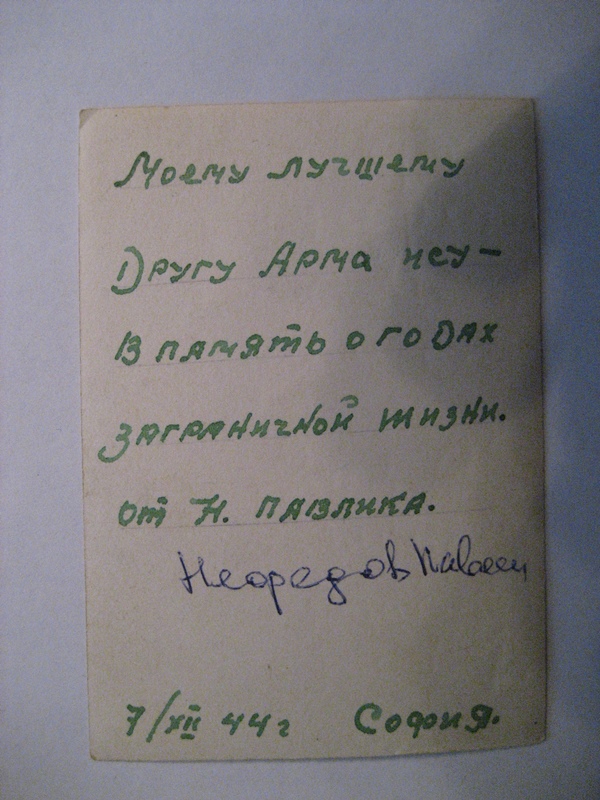 Моему лучшему
Другу Арма неу-
В память о годах
заграничной жизни.
от Н. Павлика.
Нефедов Павел
7/XII 44г София.